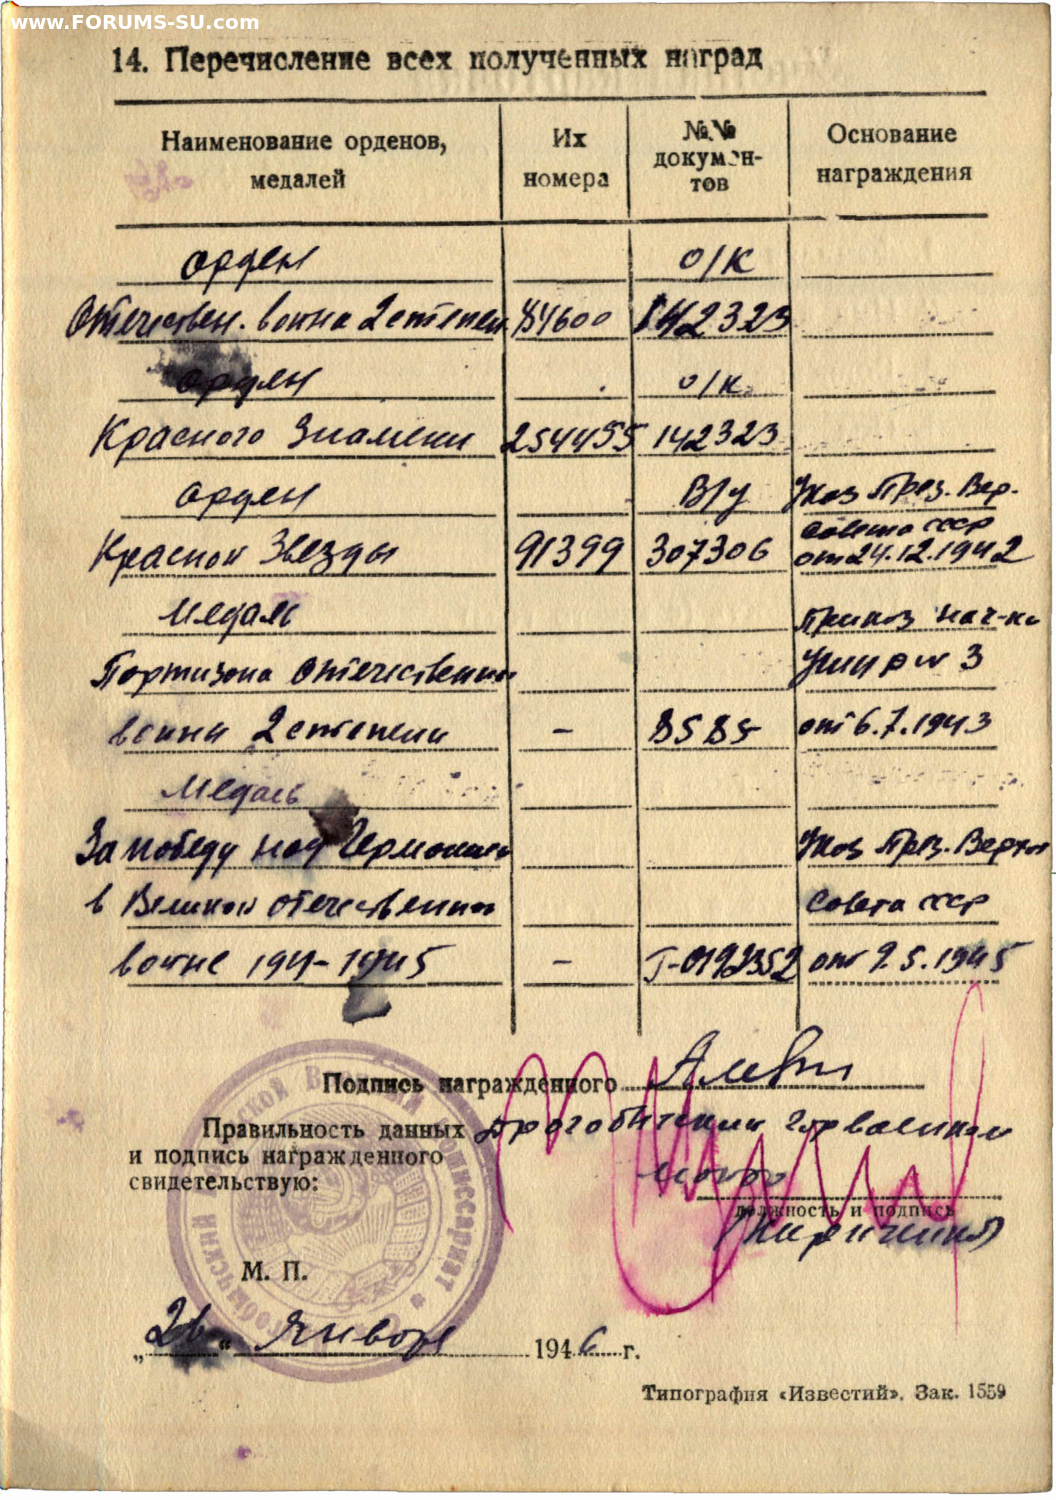 www.FORUMS-SU.com
14. Перечисление всех полученных наград
Наименование орденов, медалей
Их номера
№№ документов
Основание награждения
Орден о/к
Отечествен. война 2 степен 142323
Орден о/к
Красного Знамени 254455 142323
Орден В/у Указ През. Вер.
Совета СССР
Красной Звезды 91399 307306 от 24.12.1942
Медаль Приказ нач-ка
Партизана Отечественной 3
войны 2 степени – 8585 от 6.7.1943
Медаль
За победу над Германией Указ През. Верхов
в Великой отечественной Совета СССР
войне 1941-1945 – от 9.5.1945
Подпись награжденного
Правильность данных Дрогобычский горвоенком
и подпись награжденного
свидетельствую:
должность и подпись
М. П.
„26“ Января 1946 г.
Типография «Известий». Зак. 1559